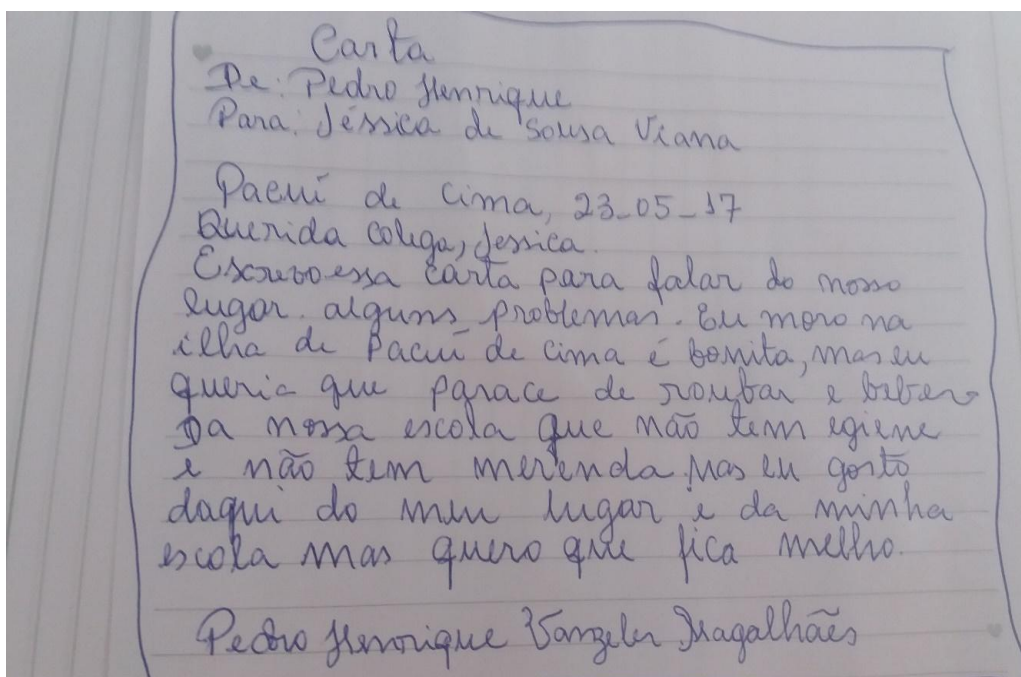 Carta
De: Pedro Henrique
Para: Jéssica de Sousa Viana
Pacuí de Cima, 23-05-17
Querida colega, Jessica.
Escrevo essa carta para falar do nosso
lugar. alguns problemas. Eu moro na
ilha de Pacuí de cima é bonita, mas eu
queria que parace de roubar e beber
Da nossa escola que não tem egiene
e não tem merenda. Mas eu gosto
daqui do meu lugar e da minha
escola mas quero que fica melho.
Pedro Henrique Vanzeler Magalhães